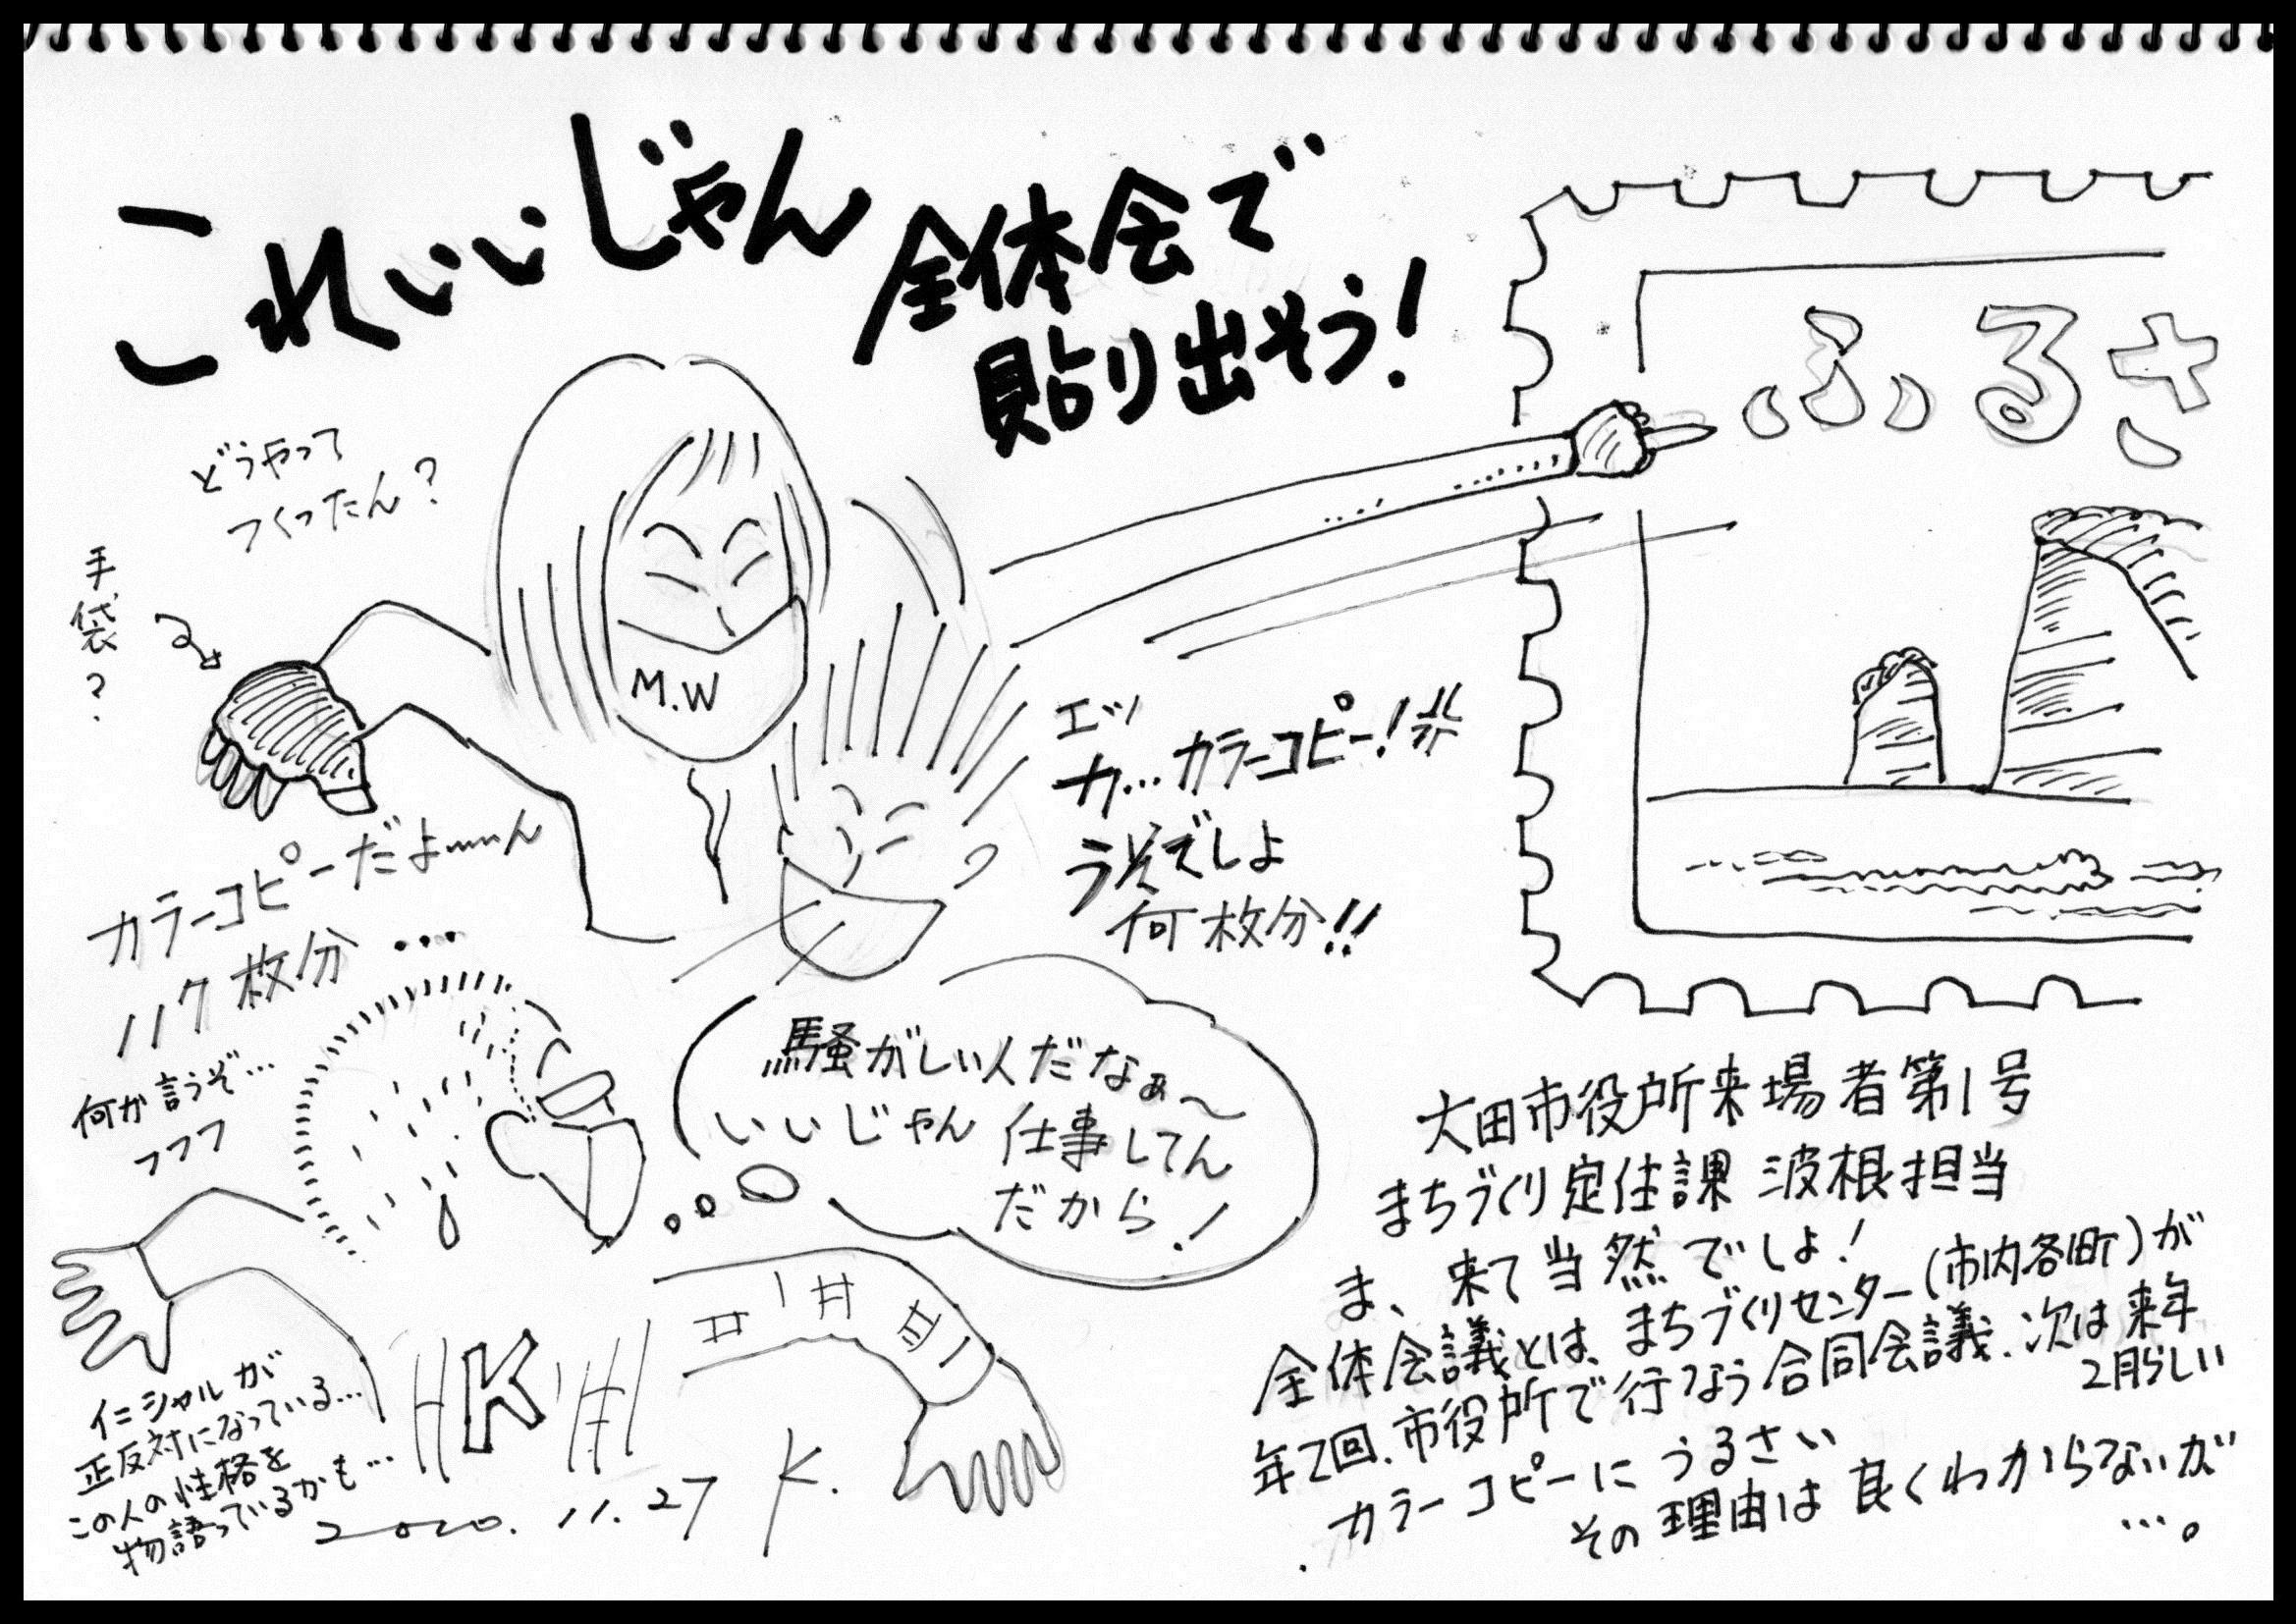 これいいじゃん
全体会で
貼り出そう!
ふるさ
どうやって
つくったん?
手袋?
M.W
エッ
カ…カラーコピー!
うそでしょ
何枚分!!
カラーコピーだよ〜〜ん
117枚分…
何か言うぞ…
フフフ
騒がしい人だなぁ〜
いいじゃん 仕事してん
だから!
大田市役所来場者第1号
まちづくり定住課 波根担当
ま、来て当然でしょ!
全体会議とは、まちづくりセンター(市内各町)が
年2回.市役所で行なう合同会議.次は来年
2月らしい
カラーコピーにうるさい
その理由は良くわからないが
…。
K
イニシャルが
正反対になっている…
この人の性格を
物語っているかも…
2020.11.27 K.